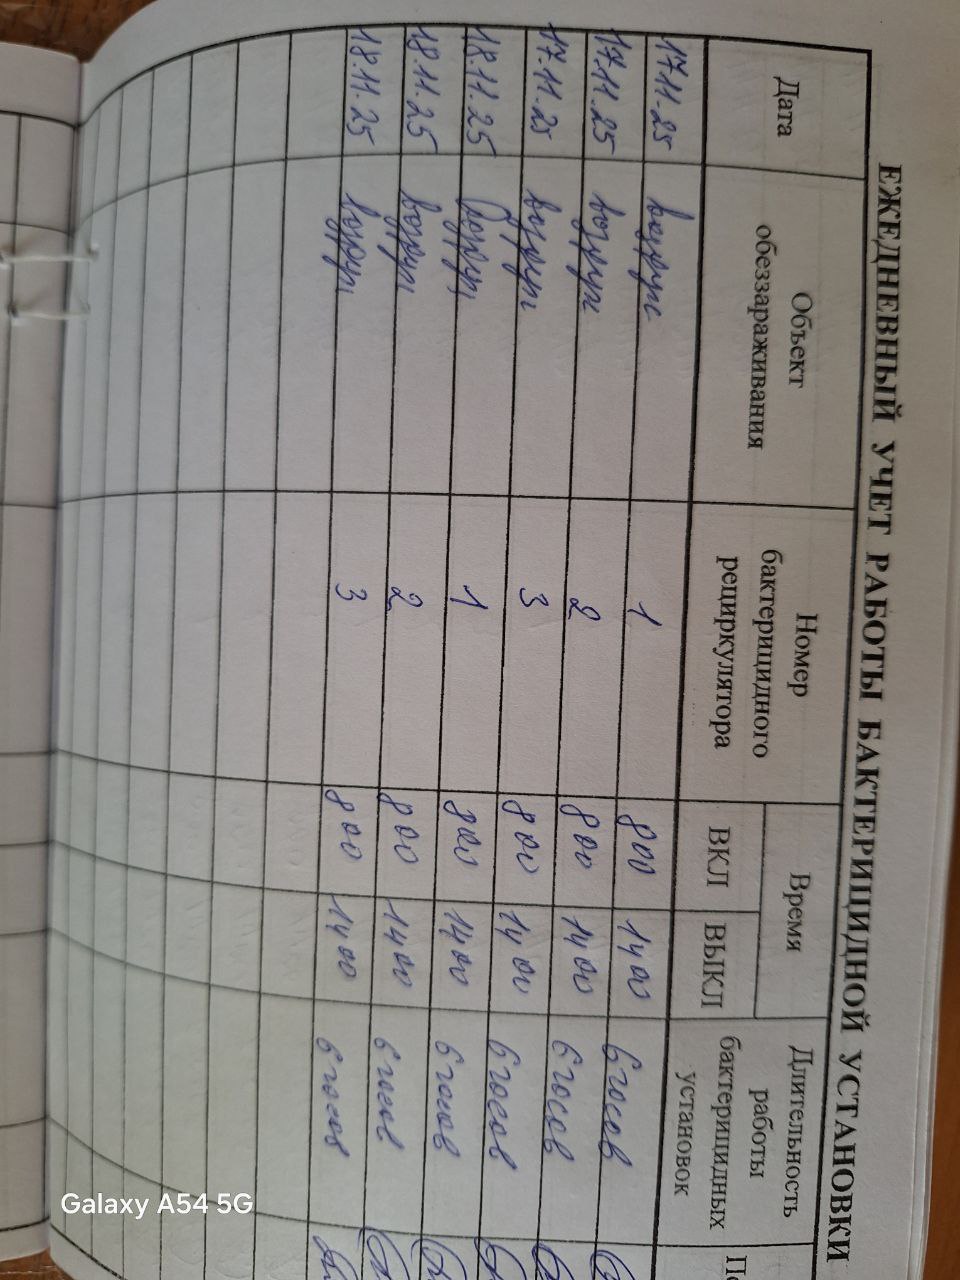 ЕЖЕДНЕВНЫЙ УЧЕТ РАБОТЫ БАКТЕРИЦИДНОЙ УСТАНОВКИ
Дата
Объект
обеззараживания
Номер
бактерицидного
рециркулятора
Время
ВКЛ
ВЫКЛ
Длительность
работы
бактерицидных
установок
17.11.25 воздух 1 8 00 14 00 6 часов
17.11.25 воздух 2 8 00 14 00 6 часов
17.11.25 воздух 3 8 00 14 00 6 часов
18.11.25 воздух 1 8 00 14 00 6 часов
18.11.25 воздух 2 8 00 14 00 6 часов
18.11.25 воздух 3 8 00 14 00 6 часов
Galaxy A54 5G